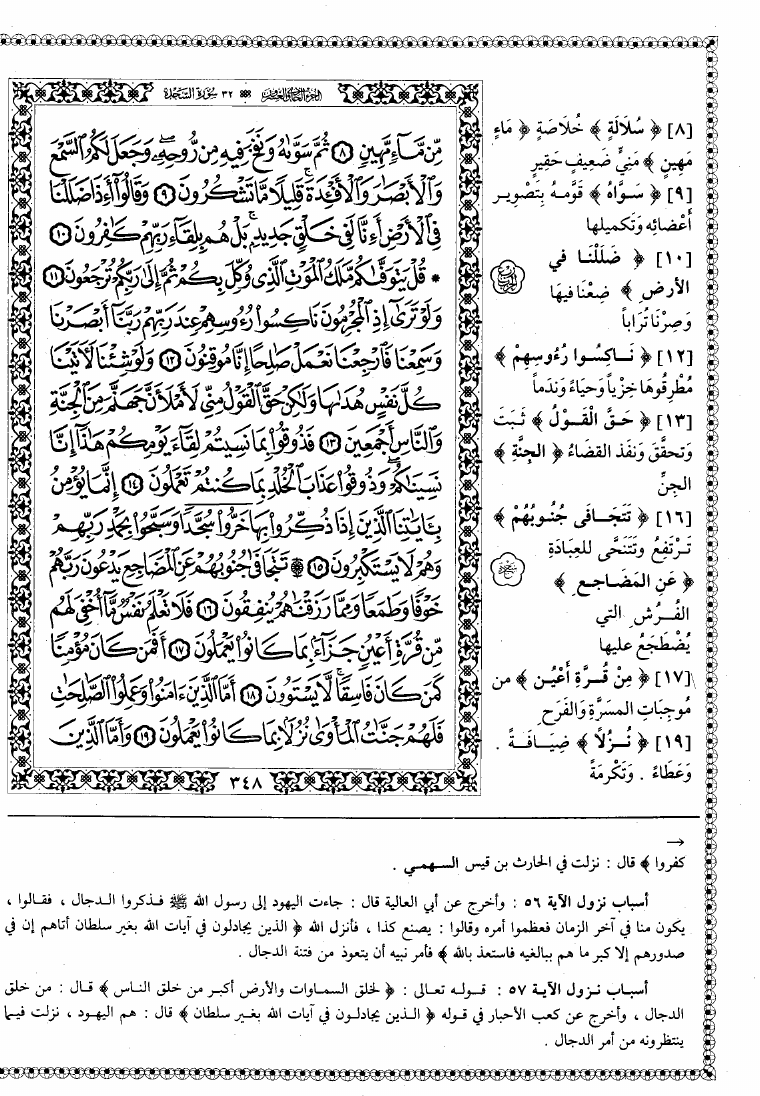 الجزء الحادي والعشرون ٣٢ سورة السجدة
مِّن مَّآءٍ مَّهِينٍ ٨ ثُمَّ سَوَّىٰهُ وَنَفَخَ فِيهِ مِن رُّوحِهِۦ وَجَعَلَ لَكُمُ ٱلسَّمْعَ
وَٱلْأَبْصَٰرَ وَٱلْأَفْـِٔدَةَ قَلِيلًا مَّا تَشْكُرُونَ ٩ وَقَالُوٓا۟ أَءِذَا ضَلَلْنَا
فِى ٱلْأَرْضِ أَءِنَّا لَفِى خَلْقٍ جَدِيدٍۭ بَلْ هُم بِلِقَآءِ رَبِّهِمْ كَٰفِرُونَ ١٠
* قُلْ يَتَوَفَّىٰكُم مَّلَكُ ٱلْمَوْتِ ٱلَّذِى وُكِّلَ بِكُمْ ثُمَّ إِلَىٰ رَبِّكُمْ تُرْجَعُونَ ١١
وَلَوْ تَرَىٰٓ إِذِ ٱلْمُجْرِمُونَ نَاكِسُوا۟ رُءُوسِهِمْ عِندَ رَبِّهِمْ رَبَّنَآ أَبْصَرْنَا
وَسَمِعْنَا فَٱرْجِعْنَا نَعْمَلْ صَٰلِحًا إِنَّا مُوقِنُونَ ١٢ وَلَوْ شِئْنَا لَءَاتَيْنَا
كُلَّ نَفْسٍ هُدَىٰهَا وَلَٰكِنْ حَقَّ ٱلْقَوْلُ مِنِّى لَأَمْلَأَنَّ جَهَنَّمَ مِنَ ٱلْجِنَّةِ
وَٱلنَّاسِ أَجْمَعِينَ ١٣ فَذُوقُوا۟ بِمَا نَسِيتُمْ لِقَآءَ يَوْمِكُمْ هَٰذَآ إِنَّا
نَسِينَٰكُمْ وَذُوقُوا۟ عَذَابَ ٱلْخُلْدِ بِمَا كُنتُمْ تَعْمَلُونَ ١٤ إِنَّمَا يُؤْمِنُ
بِـَٔايَٰتِنَا ٱلَّذِينَ إِذَا ذُكِّرُوا۟ بِهَا خَرُّوا۟ سُجَّدًا وَسَبَّحُوا۟ بِحَمْدِ رَبِّهِمْ
وَهُمْ لَا يَسْتَكْبِرُونَ ١٥ ۩ تَتَجَافَىٰ جُنُوبُهُمْ عَنِ ٱلْمَضَاجِعِ يَدْعُونَ رَبَّهُمْ
خَوْفًا وَطَمَعًا وَمِمَّا رَزَقْنَٰهُمْ يُنفِقُونَ ١٦ فَلَا تَعْلَمُ نَفْسٌ مَّآ أُخْفِىَ لَهُم
مِّن قُرَّةِ أَعْيُنٍ جَزَآءًۢ بِمَا كَانُوا۟ يَعْمَلُونَ ١٧ أَفَمَن كَانَ مُؤْمِنًا
كَمَن كَانَ فَاسِقًا لَّا يَسْتَوُۥنَ ١٨ أَمَّا ٱلَّذِينَ ءَامَنُوا۟ وَعَمِلُوا۟ ٱلصَّٰلِحَٰتِ
فَلَهُمْ جَنَّٰتُ ٱلْمَأْوَىٰ نُزُلًۢا بِمَا كَانُوا۟ يَعْمَلُونَ ١٩ وَأَمَّا ٱلَّذِينَ
٣٤٨
[٨] ﴿ سُلَالَةٍ ﴾ خُلَاصَةٍ ﴿ مَاءٍ
مَهِينٍ ﴾ مَنِيٍّ ضَعِيفٍ حَقِيرٍ
[٩] ﴿ سَوَّاهُ ﴾ قَوَّمَهُ بِتَصْوِيرِ
أَعْضَائِهِ وَتَكْمِيلِها
[١٠] ﴿ ضَلَلْنَا في
الأرضِ ﴾ ضِعْنَا فيهَا
وَصِرْنَا تُرَاباً
[١٢] ﴿ نَاكِسُوا رُءُوسِهِمْ ﴾
مُطْرِقُوهَا خِزْياً وحَيَاءً وَنَدَماً
[١٣] ﴿ حَقَّ الْقَوْلُ ﴾ ثَبَتَ
وَتَحقَّقَ وَنَفَذَ القضَاءُ ﴿ الجِنَّةِ ﴾
الجِنِّ
[١٦] ﴿ تَتَجَافَى جُنُوبُهُمْ ﴾
تَرْتَفِعُ وَتَتَنَحَّى للعِبَادَةِ
﴿ عَنِ المَضَاجِعِ ﴾
الفُرُشِ التي
يُضْطَجَعُ عليها
[١٧] ﴿ مِنْ قُرَّةِ أَعْيُنٍ ﴾ من
مُوجِبَاتِ المسَرَّةِ وَالفَرَحِ
[١٩] ﴿ نُزُلاً ﴾ ضِيَافَةً .
وَعَطَاءً . وَتَكْرِمَةً
سجدة
→
كفروا ﴾ قال : نزلت في الحارث بن قيس السهمي .
أسباب نزول الآية ٥٦ : وأخرج عن أبي العالية قال : جاءت اليهود إلى رسول الله ﷺ فذكروا الدجال ، فقالوا ،
يكون منا في آخر الزمان فعظموا أمره وقالوا : يصنع كذا ، فأنزل الله ﴿ الذين يجادلون في آيات الله بغير سلطان أتاهم إن في
صدورهم إلا كبر ما هم ببالغيه فاستعذ بالله ﴾ فأمر نبيه أن يتعوذ من فتنة الدجال .
أسباب نزول الآية ٥٧ : قوله تعالى : ﴿ لخلق السماوات والأرض أكبر من خلق الناس ﴾ قال : من خلق
الدجال ، وأخرج عن كعب الأحبار في قوله ﴿ الذين يجادلون في آيات الله بغير سلطان ﴾ قال : هم اليهود ، نزلت فيما
ينتظرونه من أمر الدجال .